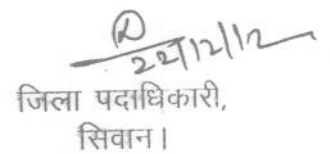 22/12/12
जिला पदाधिकारी,
सिवान।